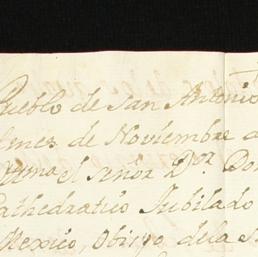 Pueblo de San Antonio
mes de Noviembre
el Señor D.or Don
Cathedratico Jubilado
Mexico, Obispo de la